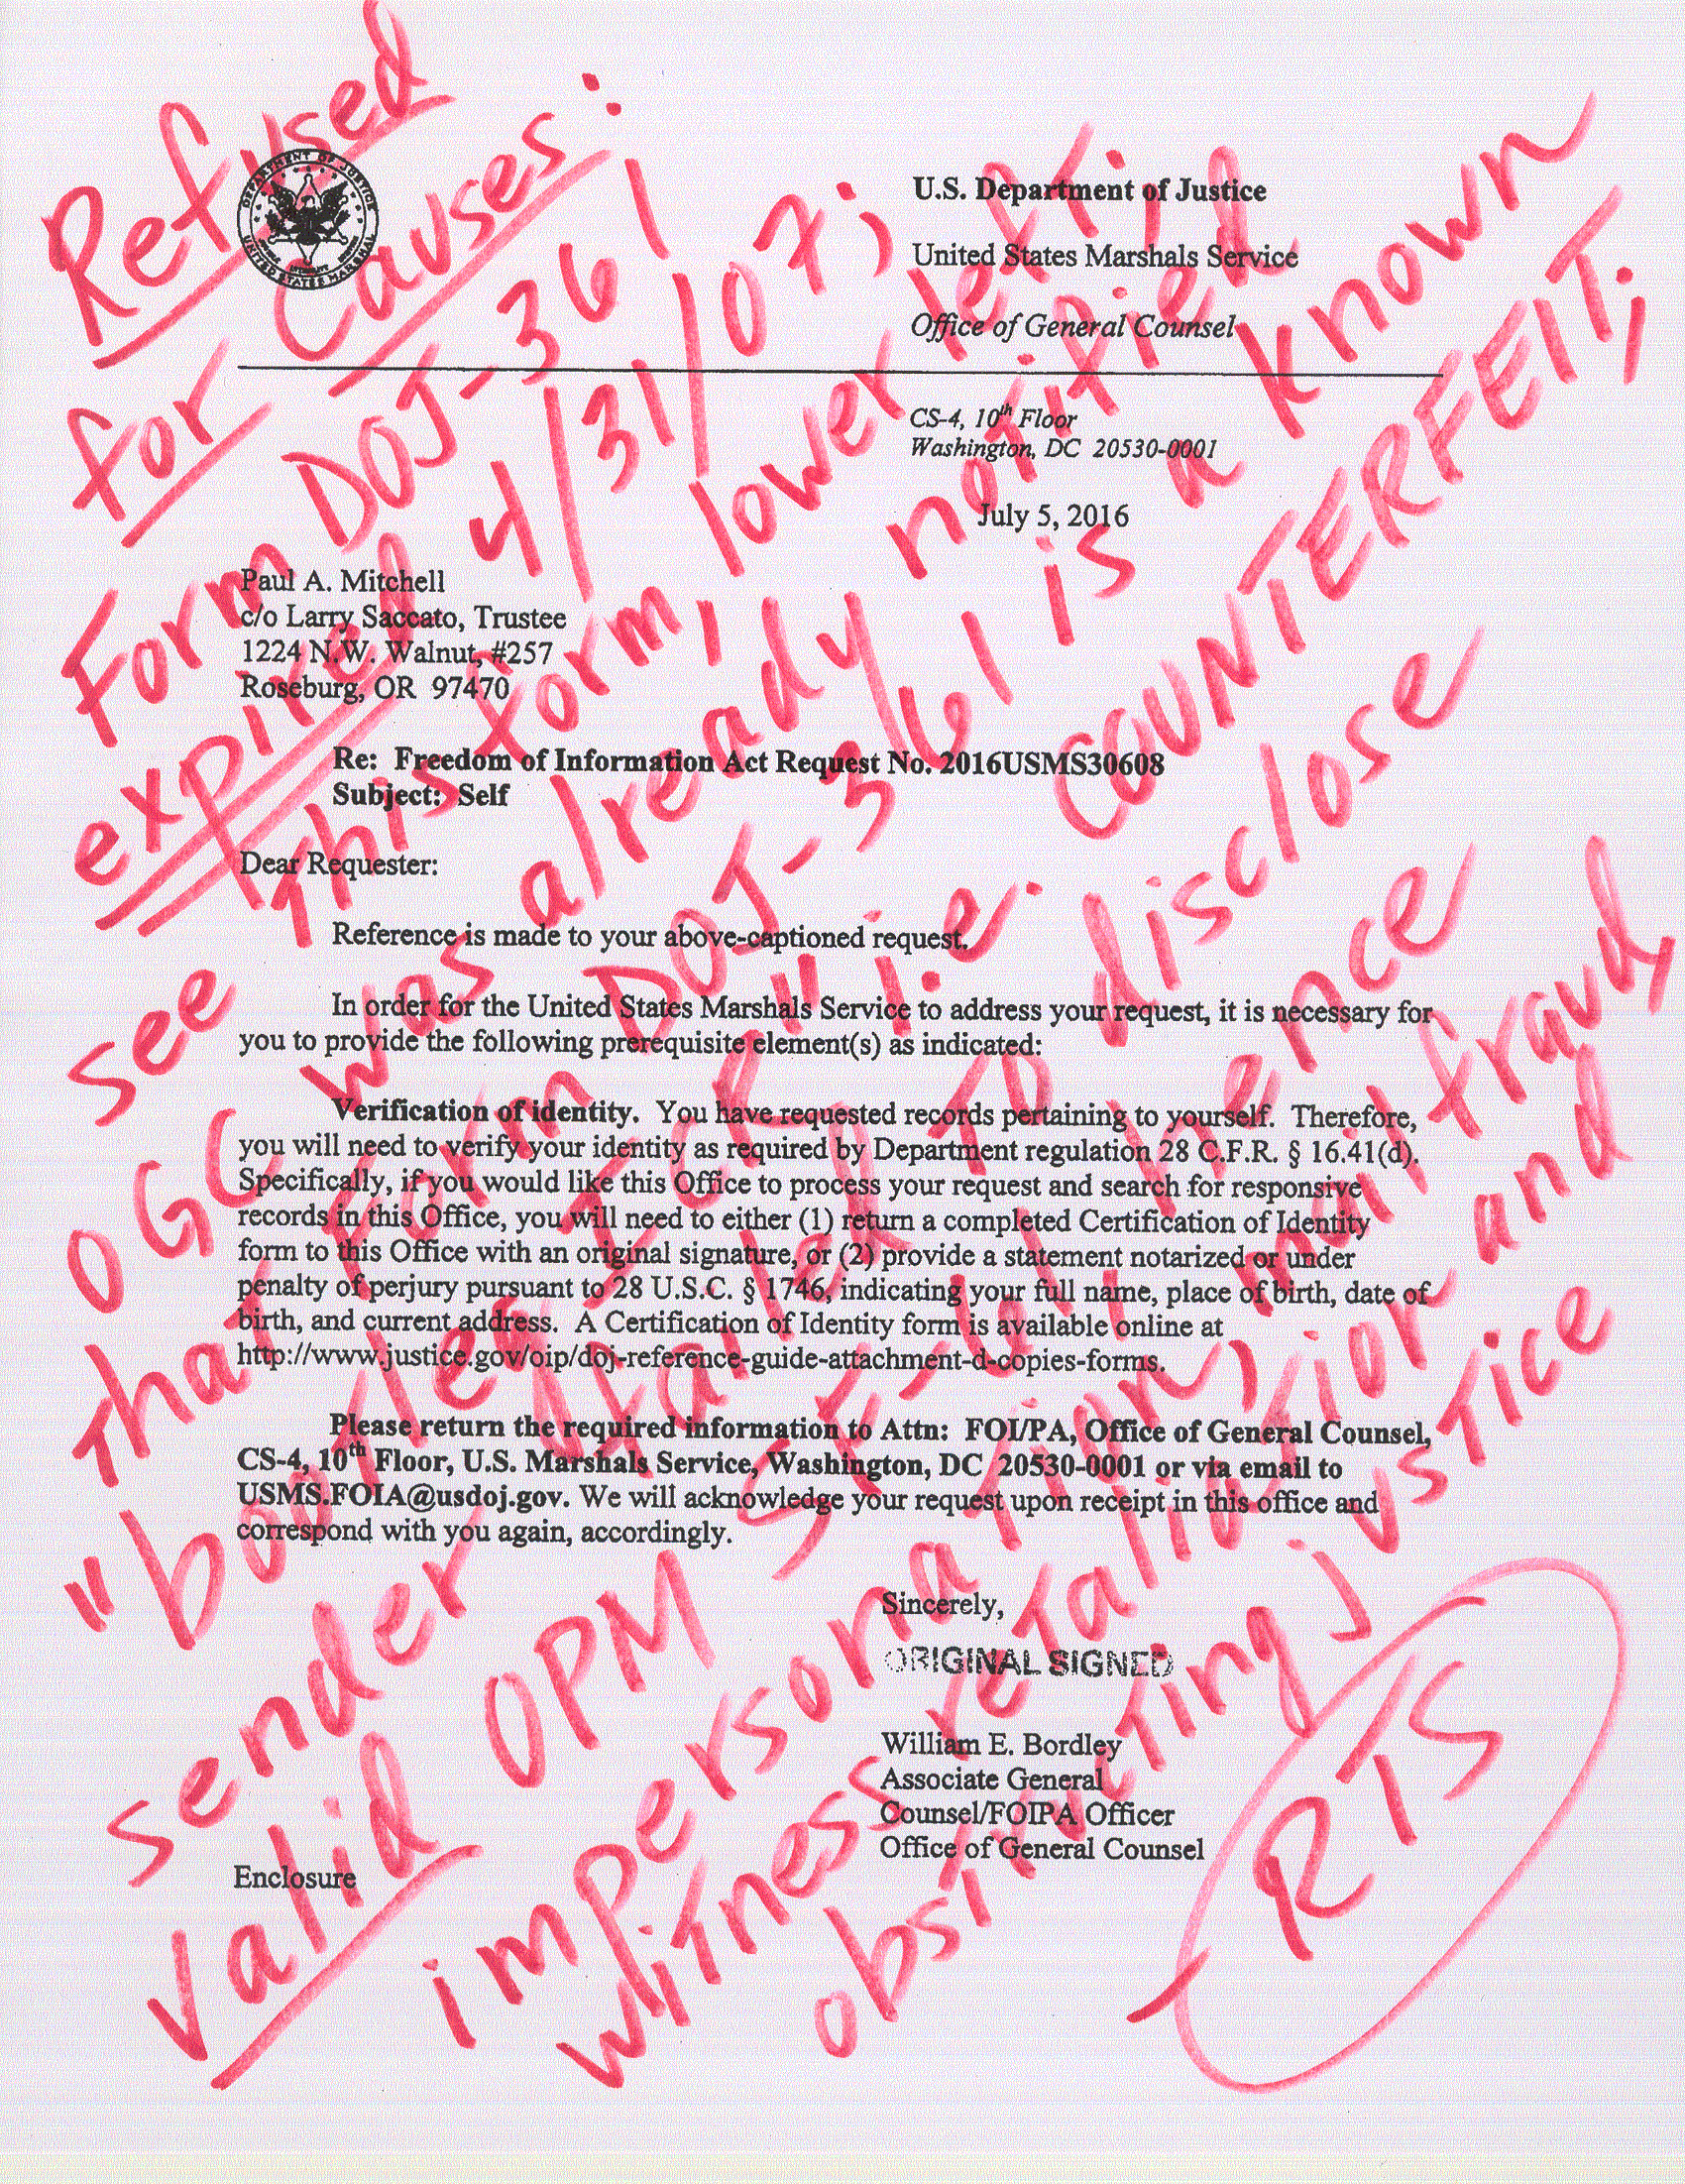 DEPARTMENT OF JUSTICE
UNITED STATES MARSHAL
U.S. Department of Justice
United States Marshals Service
Office of General Counsel
CS-4, 10th Floor
Washington, DC 20530-0001
July 5, 2016
Paul A. Mitchell
c/o Larry Saccato, Trustee
1224 N.W. Walnut, #257
Roseburg, OR 97470
Re: Freedom of Information Act Request No. 2016USMS30608
Subject: Self
Dear Requester:
Reference is made to your above-captioned request.
In order for the United States Marshals Service to address your request, it is necessary for
you to provide the following prerequisite element(s) as indicated:
Verification of identity. You have requested records pertaining to yourself. Therefore,
you will need to verify your identity as required by Department regulation 28 C.F.R. § 16.41(d).
Specifically, if you would like this Office to process your request and search for responsive
records in this Office, you will need to either (1) return a completed Certification of Identity
form to this Office with an original signature, or (2) provide a statement notarized or under
penalty of perjury pursuant to 28 U.S.C. § 1746, indicating your full name, place of birth, date of
birth, and current address. A Certification of Identity form is available online at
http://www.justice.gov/oip/doj-reference-guide-attachment-d-copies-forms.
Please return the required information to Attn: FOI/PA, Office of General Counsel,
CS-4, 10th Floor, U.S. Marshals Service, Washington, DC 20530-0001 or via email to
USMS.FOIA@usdoj.gov. We will acknowledge your request upon receipt in this office and
correspond with you again, accordingly.
Sincerely,
ORIGINAL SIGNED
William E. Bordley
Associate General
Counsel/FOIPA Officer
Office of General Counsel
Enclosure
Refused
for Causes:
Form DOJ-361
expired 4/31/07;
see this form, lower left;
OGC was already notified
that Form DOJ-361 is a known
"bootleg ICR" i.e. COUNTERFEIT;
sender failed to disclose
valid OPM SF-61, hence
impersonation, mail fraud
witness retaliation and
obstructing justice
- RTS